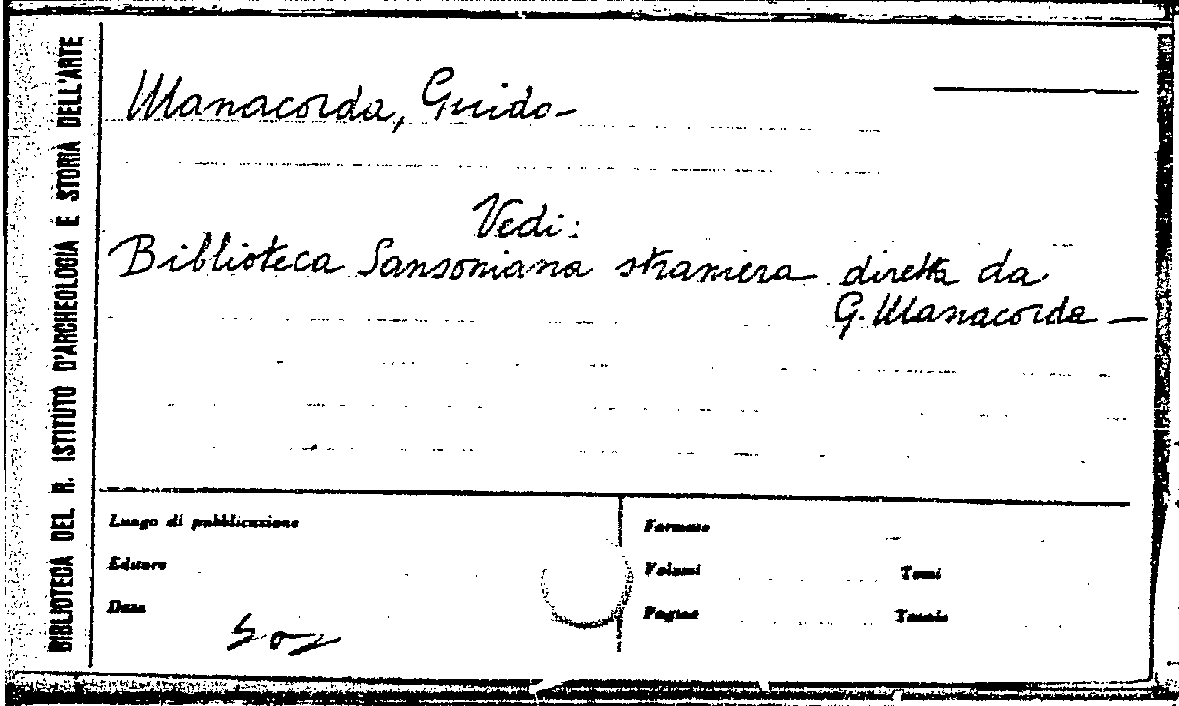 BIBLIOTECA DEL R. ISTITUTO D'ARCHEOLOGIA E STORIA DELL'ARTE
Manacorda, Guido-
Vedi:
Biblioteca Sansoniana straniera diretta da
G. Manacorda —
Luogo di pubblicazione
Editore
Data
Formato
Volumi
Tomi
Pagine
Tavole